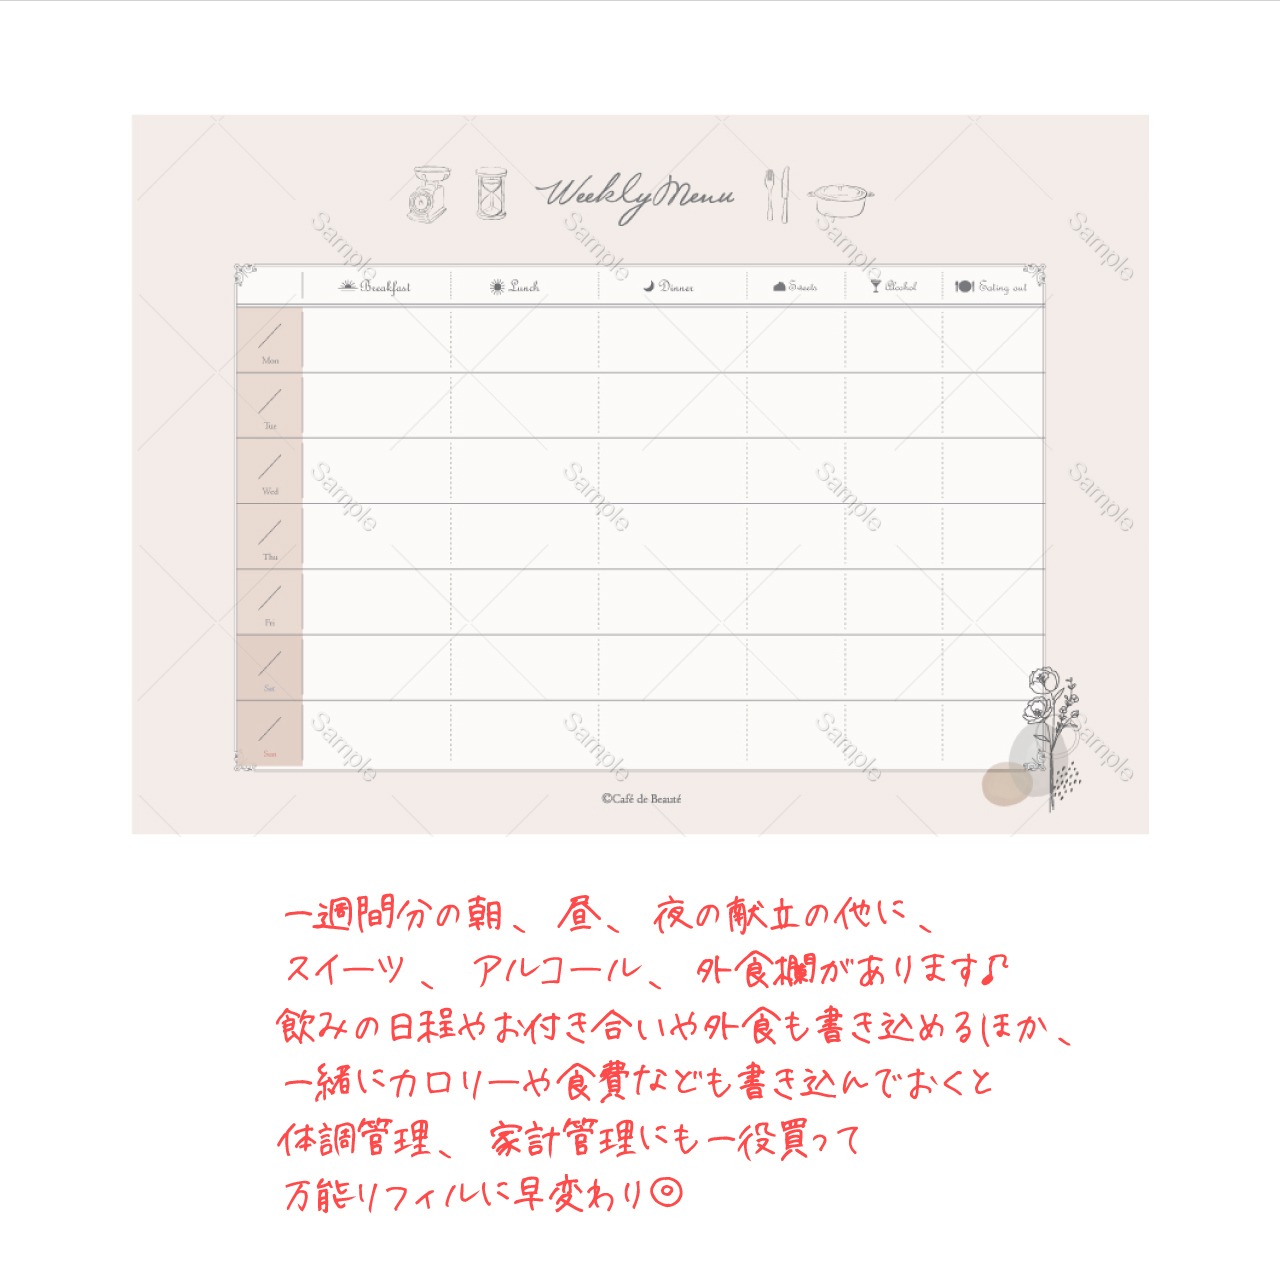 Weekly Menu
Breakfast Lunch Dinner Sweets Alcohol Eating out
Mon
Tue
Wed
Thu
Fri
Sat
Sun
Sample Sample Sample Sample
Sample Sample Sample Sample
Sample Sample Sample Sample
©Café de Beauté
一週間分の朝、昼、夜の献立の他に、
スイーツ、アルコール、外食欄があります♪
飲みの日程やお付き合いや外食も書き込めるほか、
一緒にカロリーや食費なども書き込んでおくと
体調管理、家計管理にも一役買って
万能リフィルに早変わり◎